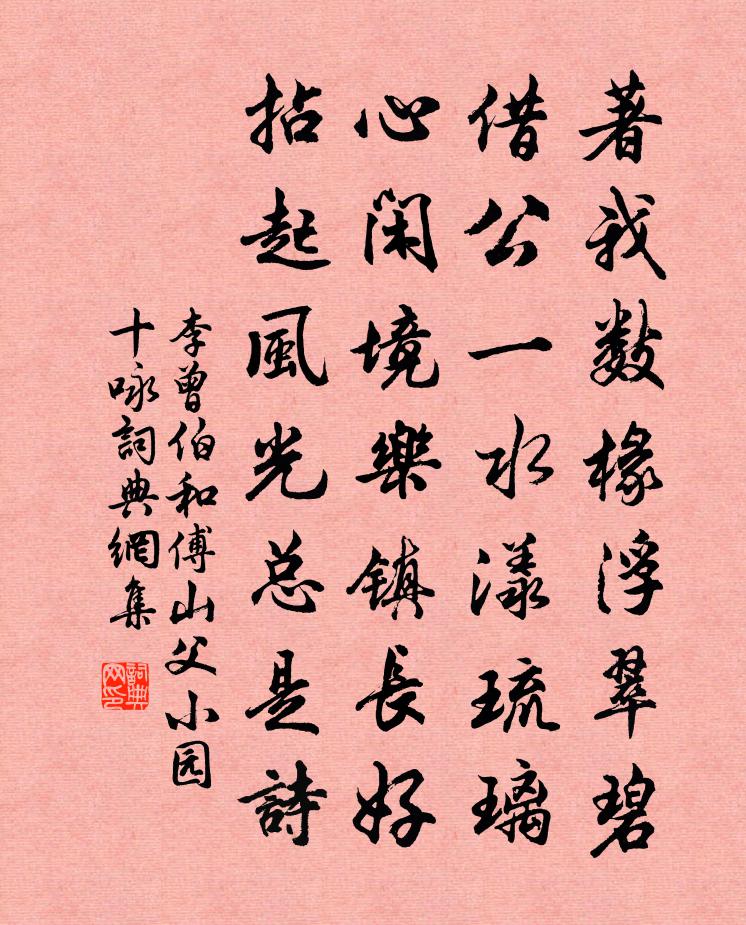 著我数椽浮翠碧
借公一水漾琉璃
心闲境樂镇長好
拈起風光总是詩
李曾伯和傅山父小园
十咏詞典網集
詞典網印